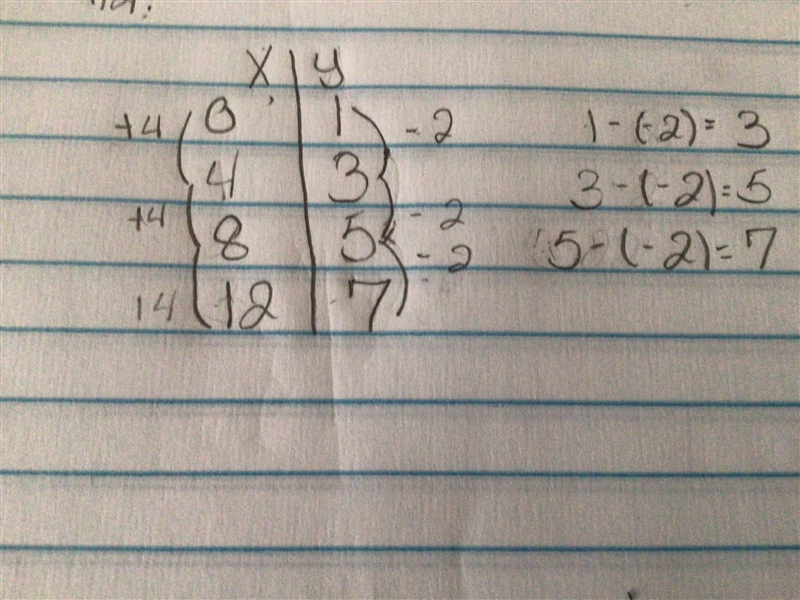 x y
+4 0 1 - 2 1 - (-2) = 3
4 3 3 - (-2) = 5
+4 8 5 - 2 - 2 5 - (-2) = 7
14 12 7